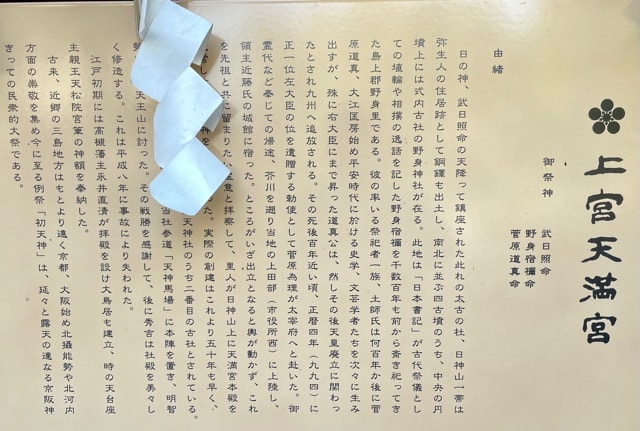 上宮天満宮
御祭神
武日照命
野身宿禰命
菅原道真命
由緒
日の神、武日照命の天降って鎮座された此れの太古の社、日神山一帯は
弥生人の住居跡として銅鐸も出土し、南北に並ぶ四古墳のうち、中央の円
墳上には式内古社の野身神社が在る。此地は「日本書記」が古代祭儀とし
ての埴輪や相撲の逸話を記した野身宿禰を千数百年も前から斎き祀ってき
た島上郡野身里である。彼の率いる祭祀者一族、土師氏は何百年か後に菅
原道真、大江匡房始め平安時代に於ける史学、文芸学者たちを次々に生み
出すが、殊に右大臣にまで昇った道真公は、然しその後天皇廃立に関わっ
たとされ九州へ追放される。その死後百年近い頃、正暦四年（九九四）に
正一位左大臣の位を遺贈する勅使として菅原為理が太宰府へと赴いた。御
霊代など奉じての帰途、芥川を遡り当地の上田部（市役所西）に上陸し、
領主近藤氏の城館に宿った。ところがいざ出立となると輿が動かず、これ
を先祖と共に留まりたい意と拝察して、里人が日神山上に天満宮本殿を
た。実際の創建はこれより五十年も早く、
天神社のうち二番目の古社とされている。
当社参道「天神馬場」に本陣を置き、明智
天王山に討った。その戦勝を感謝して、後に秀吉は社殿を美々し
く修造する。これは平成八年に事故により失われた。
江戸初期には高槻藩主永井直清が拝殿を設け大鳥居も建立、時の天台座
主親王天松院宮筆の神額を奉納した。
古来、近郷の三島地方はもとより遠く京都、大阪始め北摂能勢や北河内
方面の崇敬を集め今に至る例祭「初天神」は、延々と露天の連なる京阪神
きっての民衆的大祭である。